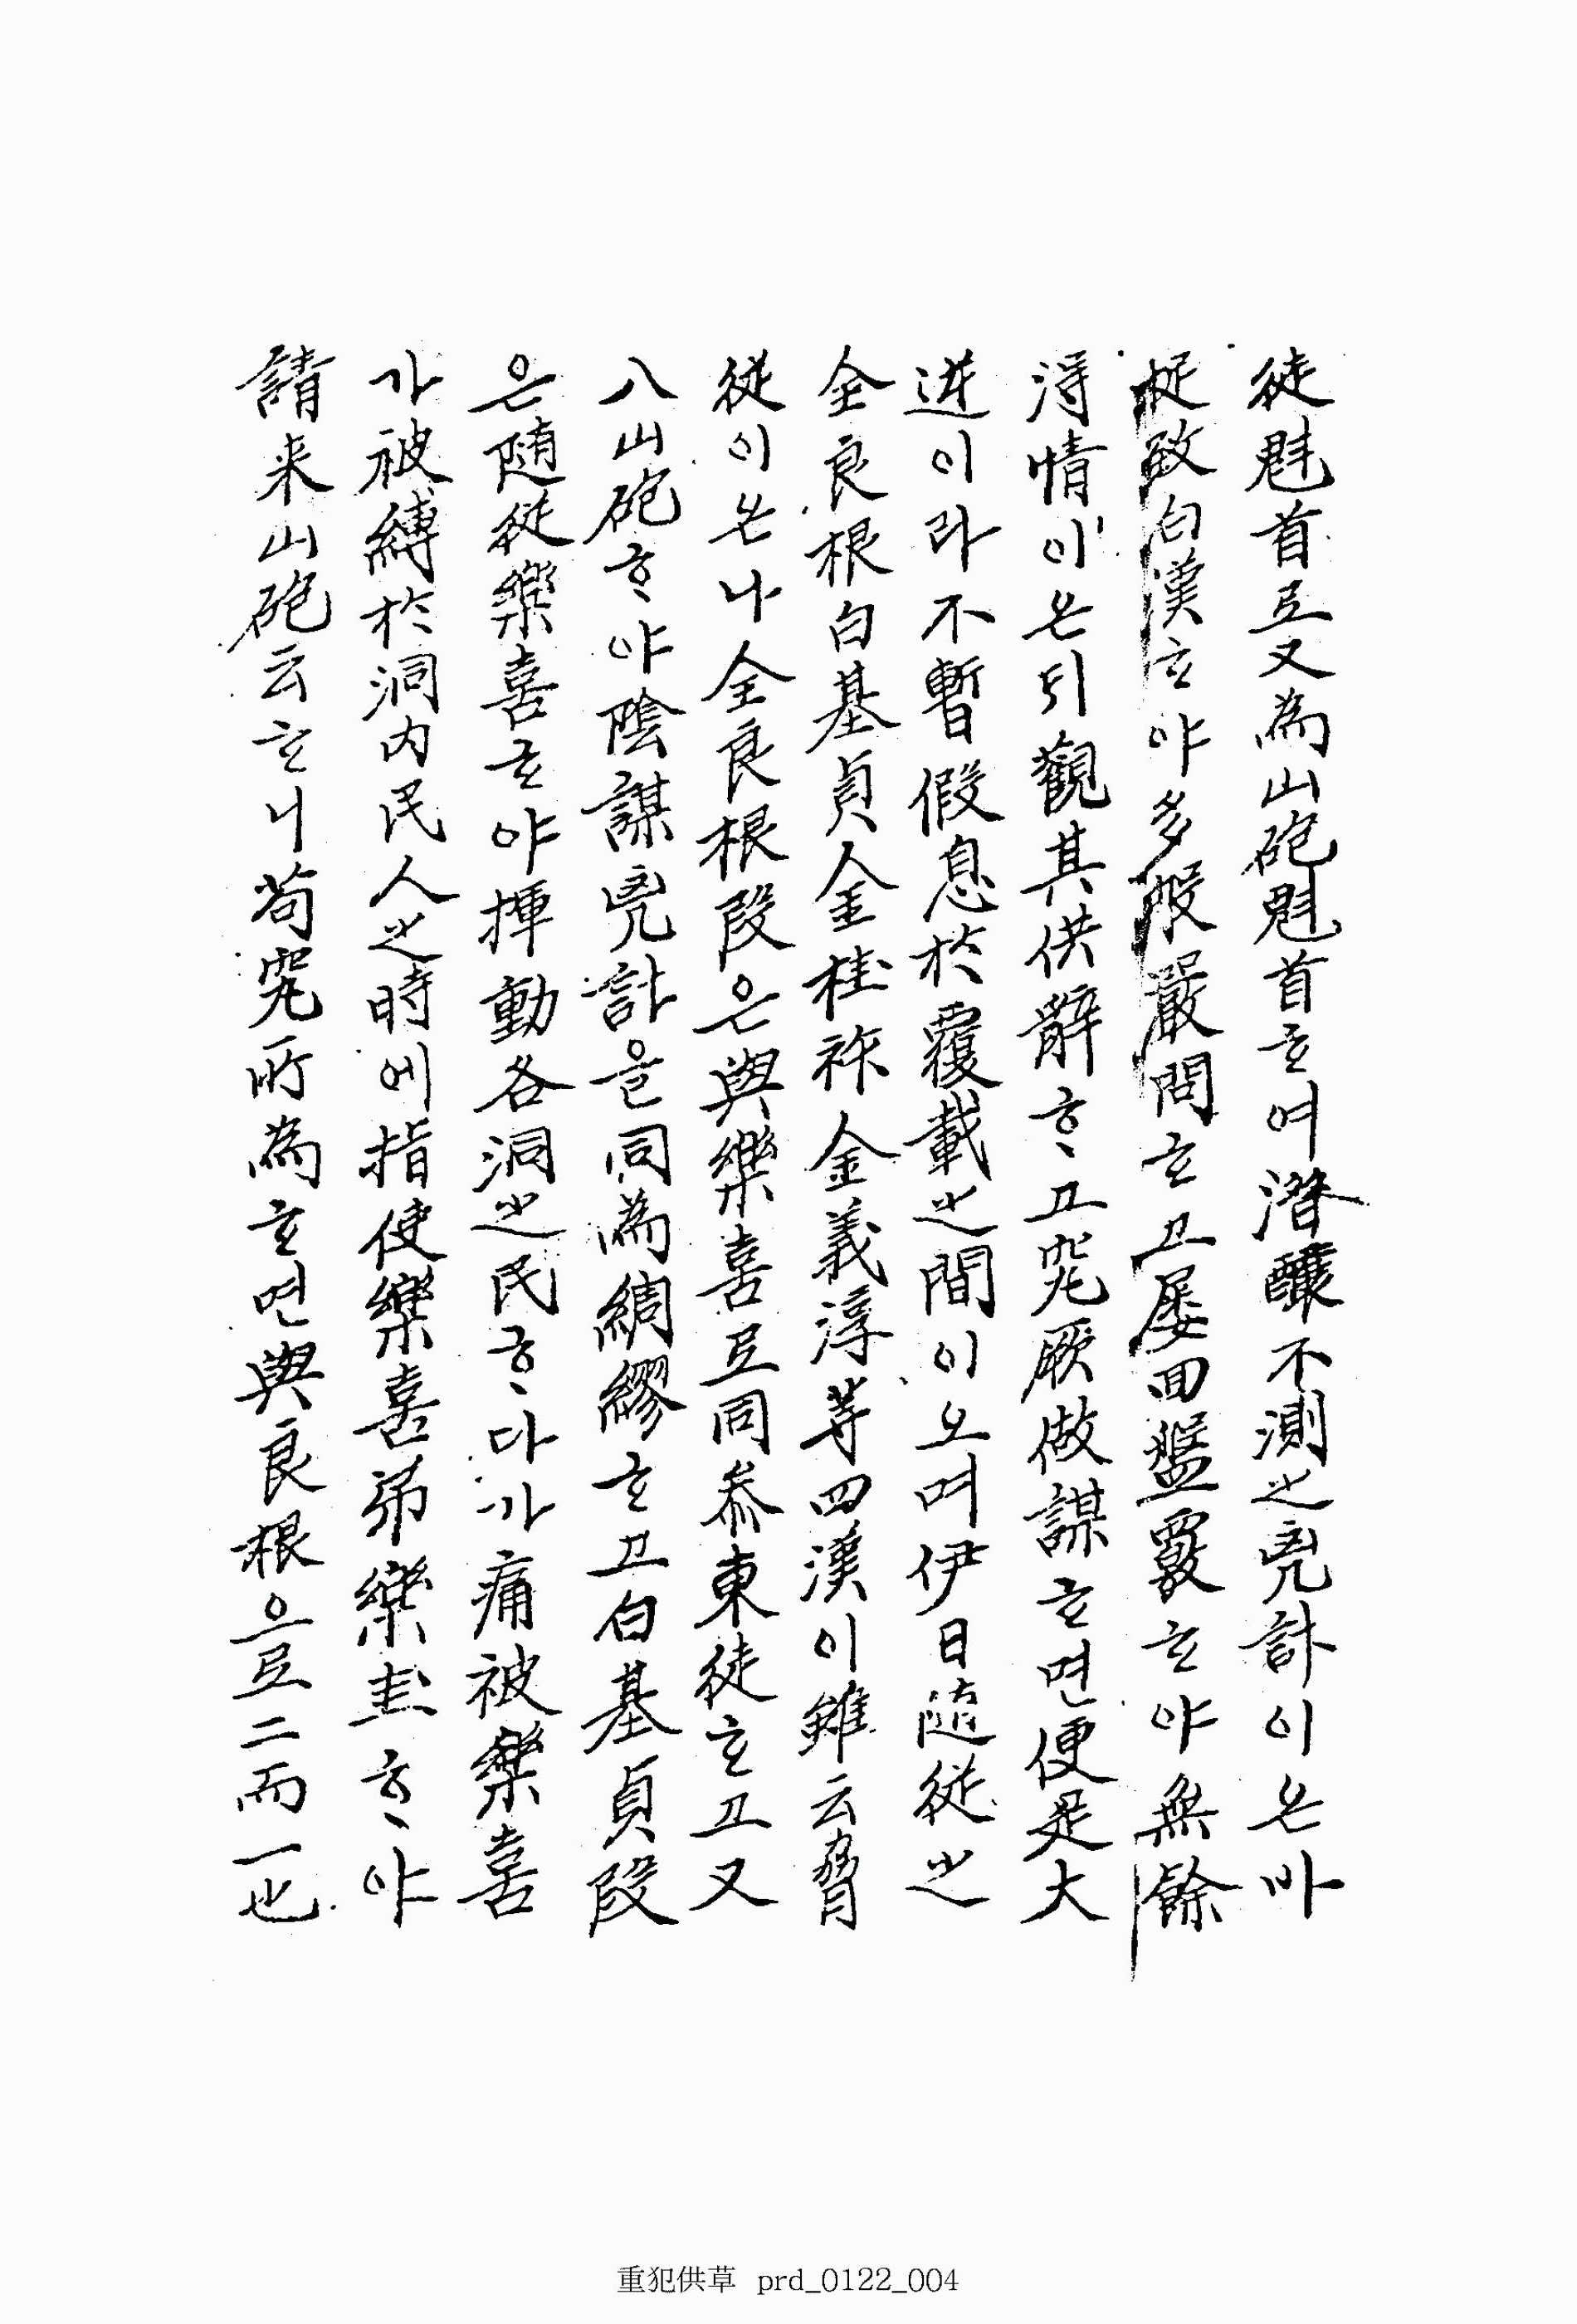 徒魁首로又為山砲魁首ᄒᆞ여潛釀不測之兇計이온바
捉致白漢ᄒᆞ야多般嚴問ᄒᆞ고屡回盤覈ᄒᆞ야無餘
淂情이온덕觀其供辭ᄒᆞ고究厥做謀ᄒᆞ면便是大
逆이라不暫假息於覆載之間이오며伊日随從之
全良根白基貞金桂祚金義淳等四漢이雖云脅
從이온나全良根段은與樂喜로同叅東徒ᄒᆞ고又
八山砲ᄒᆞ야陰謀兇計을同為綢繆ᄒᆞ고白基貞段
은随從樂喜ᄒᆞ야揮動各洞之民ᄒᆞ다가痛被樂喜
가被縛於洞内民人之時에指使樂喜弟樂圭ᄒᆞ야
請来山砲云ᄒᆞ니苟究所為ᄒᆞ면與良根으로二而一也
重犯供草 prd_0122_004